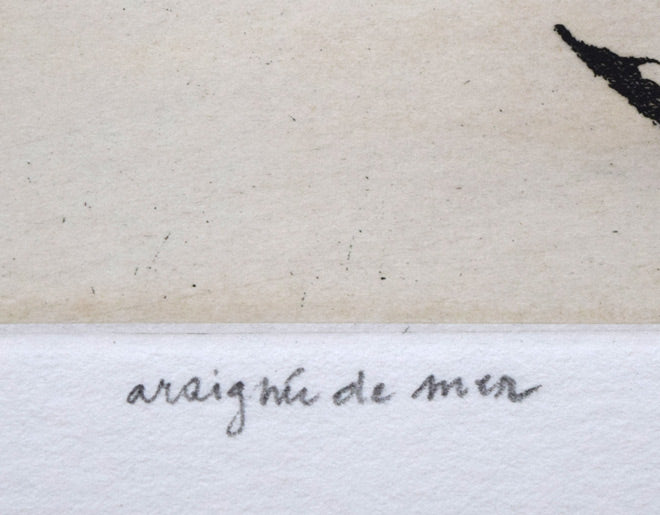 araignée de mer